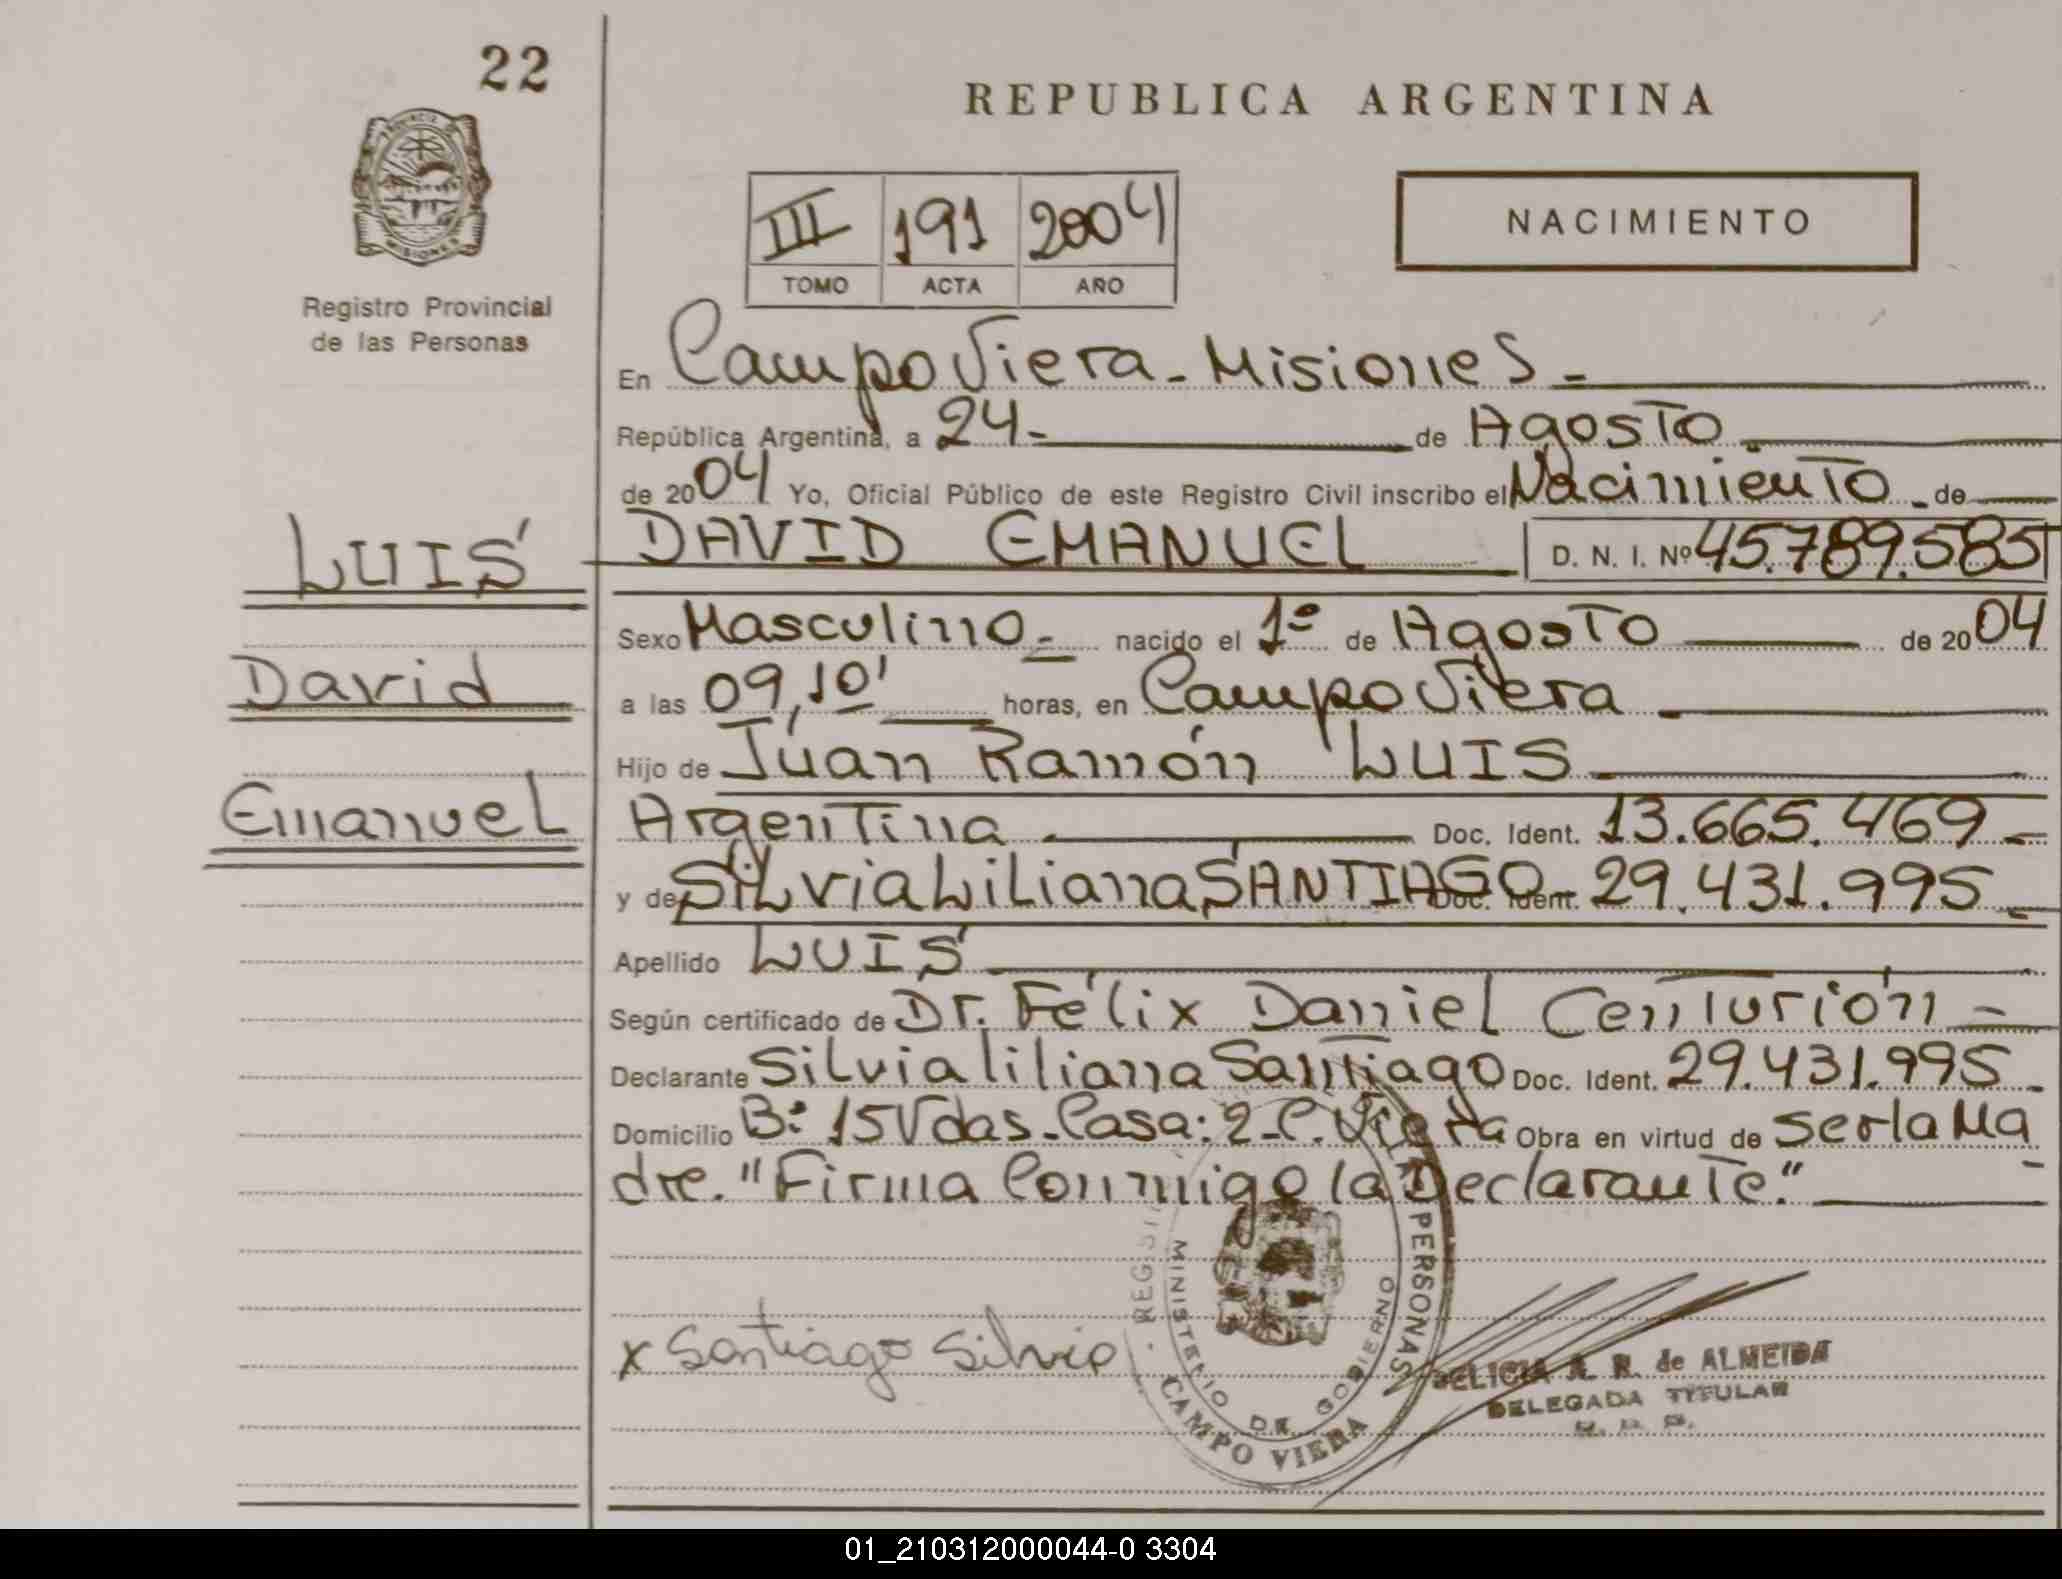 22
REPUBLICA ARGENTINA
PROVINCIA DE
MISIONES
Registro Provincial
de las Personas
III 191 2004
TOMO ACTA AÑO
NACIMIENTO
En Campo Viera - Misiones -
República Argentina, a 24 - de Agosto
de 2004 Yo, Oficial Público de este Registro Civil inscribo el Nacimiento - de
DAVID EMANUEL D. N. I. Nº 45.789.585
LUIS
David
Emanuel
Sexo Masculino - nacido el 1º de Agosto de 2004
a las 09,10' horas, en Campo Viera
Hijo de Juan Ramón LUIS
Argentina Doc. Ident. 13.665.469 -
y de Silvia Liliana SANTIAGO Doc. Ident. 29.431.995 -
Apellido LUIS
Según certificado de Dr. Félix Daniel Centurión -
Declarante Silvia liliana Santiago Doc. Ident. 29.431.995 -
Domicilio Bº 15 Vdas - Casa: 2 - C. Viera Obra en virtud de ser la Ma
dre. "Firma Conmigo la Declarante."
x Santiago Silvia
PERSONAS
MINISTERIO DE GOBIERNO
CAMPO VIERA
DELICIA R. de ALMEIDA
DELEGADA TITULAR
01_210312000044-0 3304